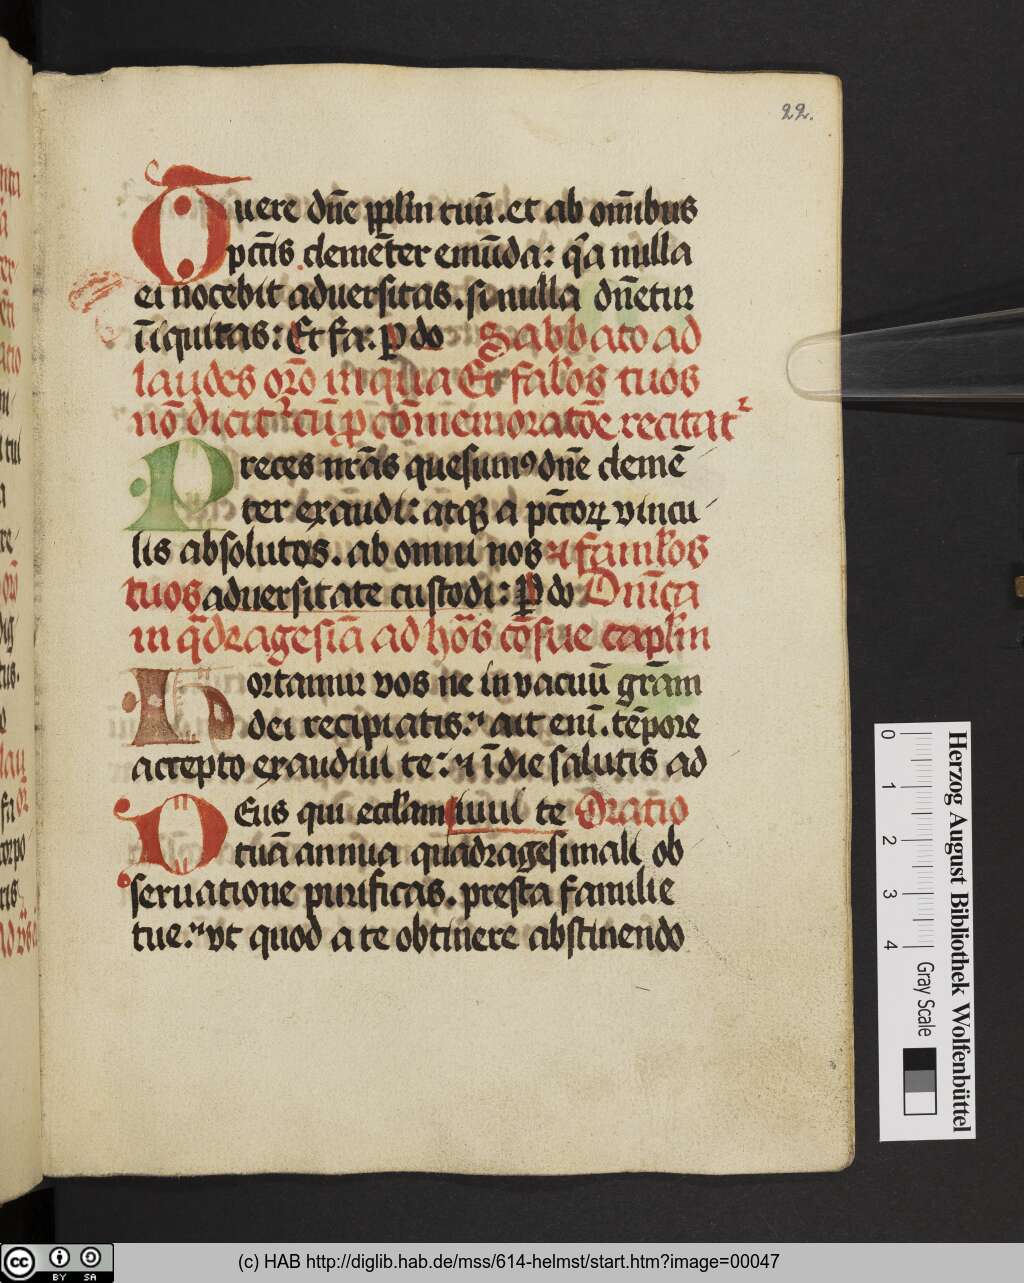 22.
Tuere dn̄e ppl̄m tuū . et ab om̄ibus
pctīs clemēter emūda : qͣa nulla
ei nocebit aduersitas . si nulla dn̄etur
īiquitas : Et fa : ꝑ do Sabbato ad
laudes or̄o in qua Et fal̄os tuos
nō dicitᷣ cū ꝑ cōmemoratōe recitatᷣ
Preces nr̄as quesumꝰ dn̄e clemē
ter exaudi : atqꝫ a pctōꝝ vincu
lis absolutos . ab omni nos ⁊ faml̄os
tuos adversitate custodi : ꝑ do Dnīca
in qͣdragesīa ad hōs cōsue capl̄m
Hortamur vos ne in vacuū grām
dei recipiatis : ait enī . tēpore
accepto exaudiui te : ⁊ ī die salutis ad
Deus qui eccl̄am iuui te Oratio
tuā annua quadragesimali ob
seruatione purificas . presta familie
tue : vt quod a te obtinere abstinendo
0 1 2 3 4
Gray Scale
Herzog August Bibliothek Wolfenbüttel
cc BY SA
(c) HAB http://diglib.hab.de/mss/614-helmst/start.htm?image=00047